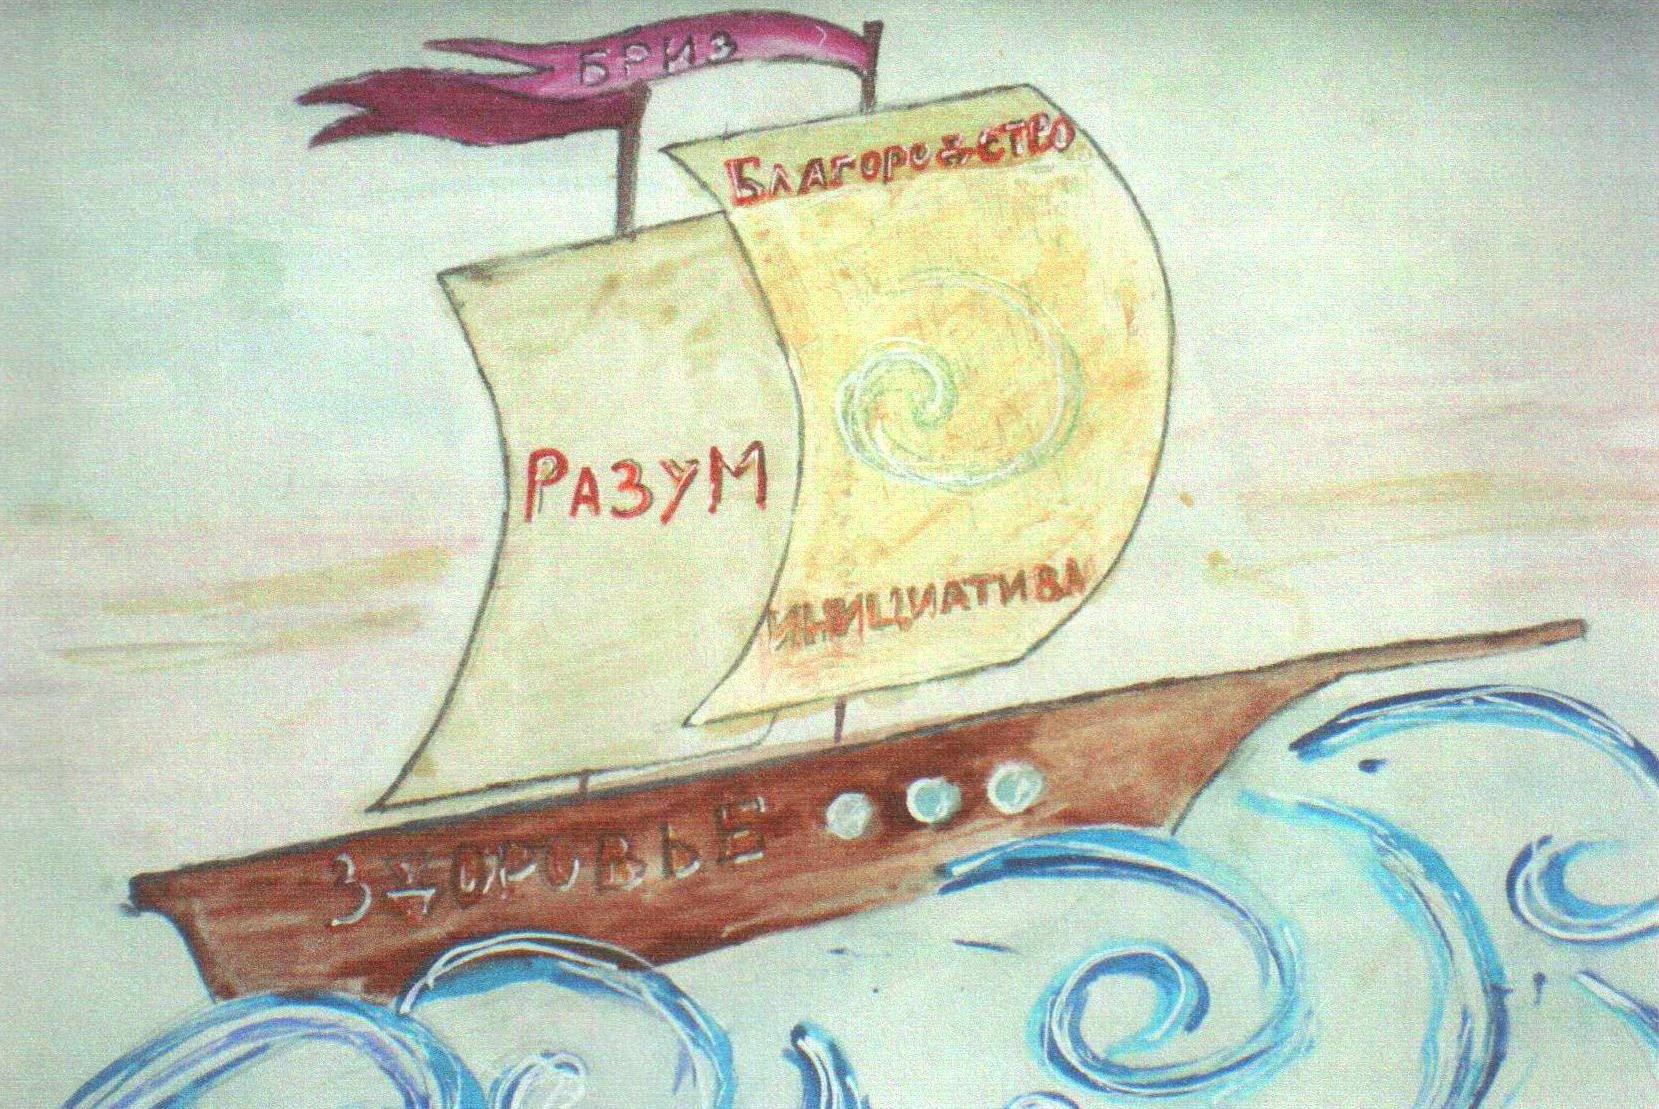 БРИЗ
БЛАГОРОДСТВО
РАЗУМ
ИНИЦИАТИВА
ЗДОРОВЬЕ